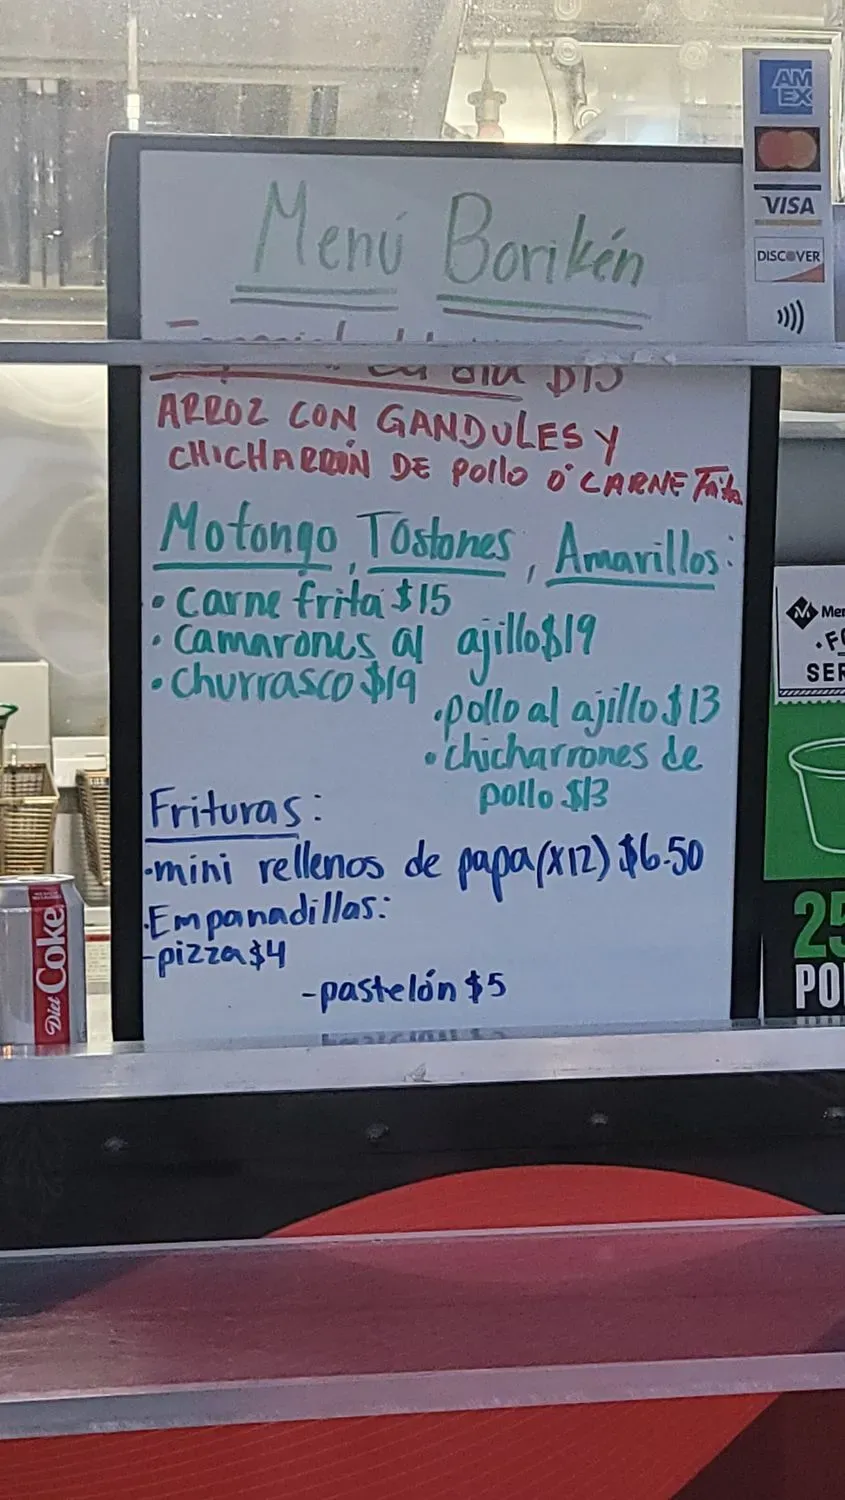 AM
EX
VISA
DISCOVER
Menú Borikén
día $15
ARROZ CON GANDULES Y
CHICHARRÓN DE Pollo Ó CARNE Frita
Mofongo, Tostones, Amarillos:
• carne frita $15
• camarones al ajillo $19
• churrasco $19
• pollo al ajillo $13
• chicharrones de
pollo $13
Frituras:
• mini rellenos de papa (x12) $6.50
• Empanadillas:
- pizza $4
- pastelón $5
Diet Coke
Mer
SER
25
PO